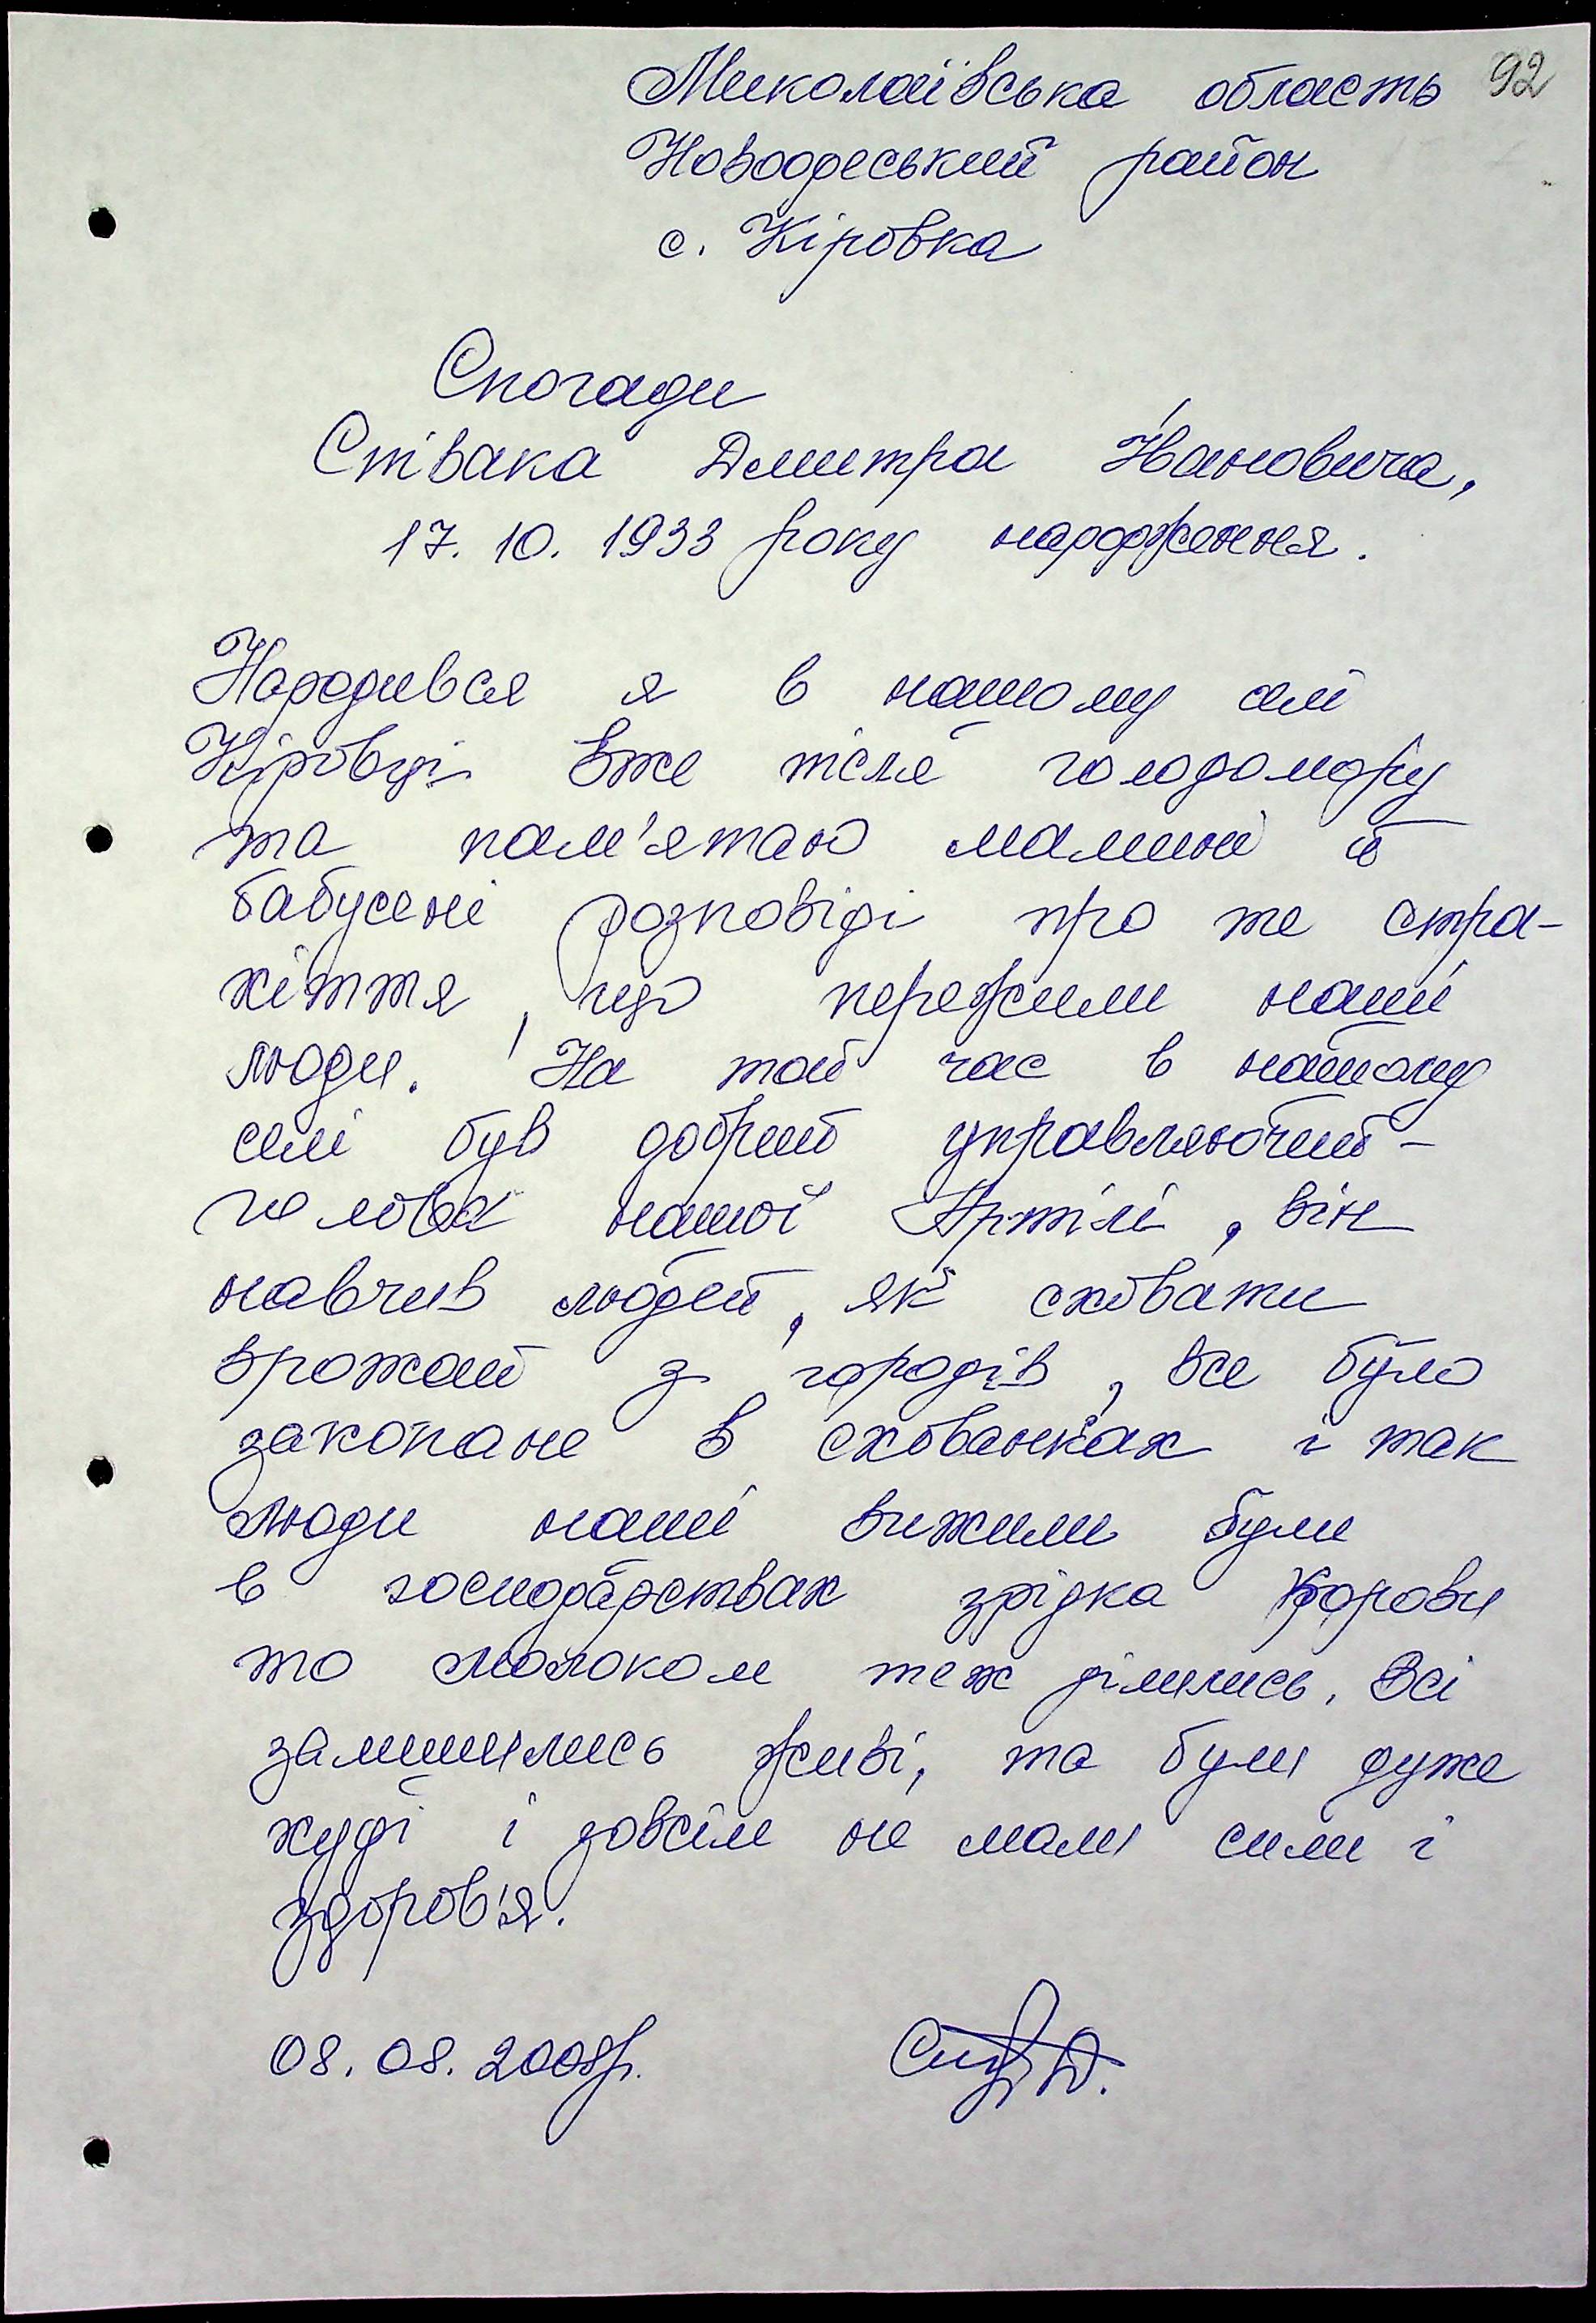 92
Миколаївська область
Новоодеський район
с. Кіровка
Спогади
Співака Дмитра Івановича,
17. 10. 1933 року народження.
Народився я в нашому селі
Кіровці вже після голодомору
та пам'ятаю мамині й
бабусені розповіді про те стра-
хіття, що пережили наші
люди. На той час в нашому
селі був добрий управляючий -
голова нашої Артілі, він
навчив людей, як сховати
врожай з городів, все було
закопане в схованках і так
люди наші вижили були
в господарствах зрідка корови
то молоком теж ділились. Всі
залишились живі, та були дуже
худі і зовсім не мали сили і
здоров'я.
08. 08. 2008р.